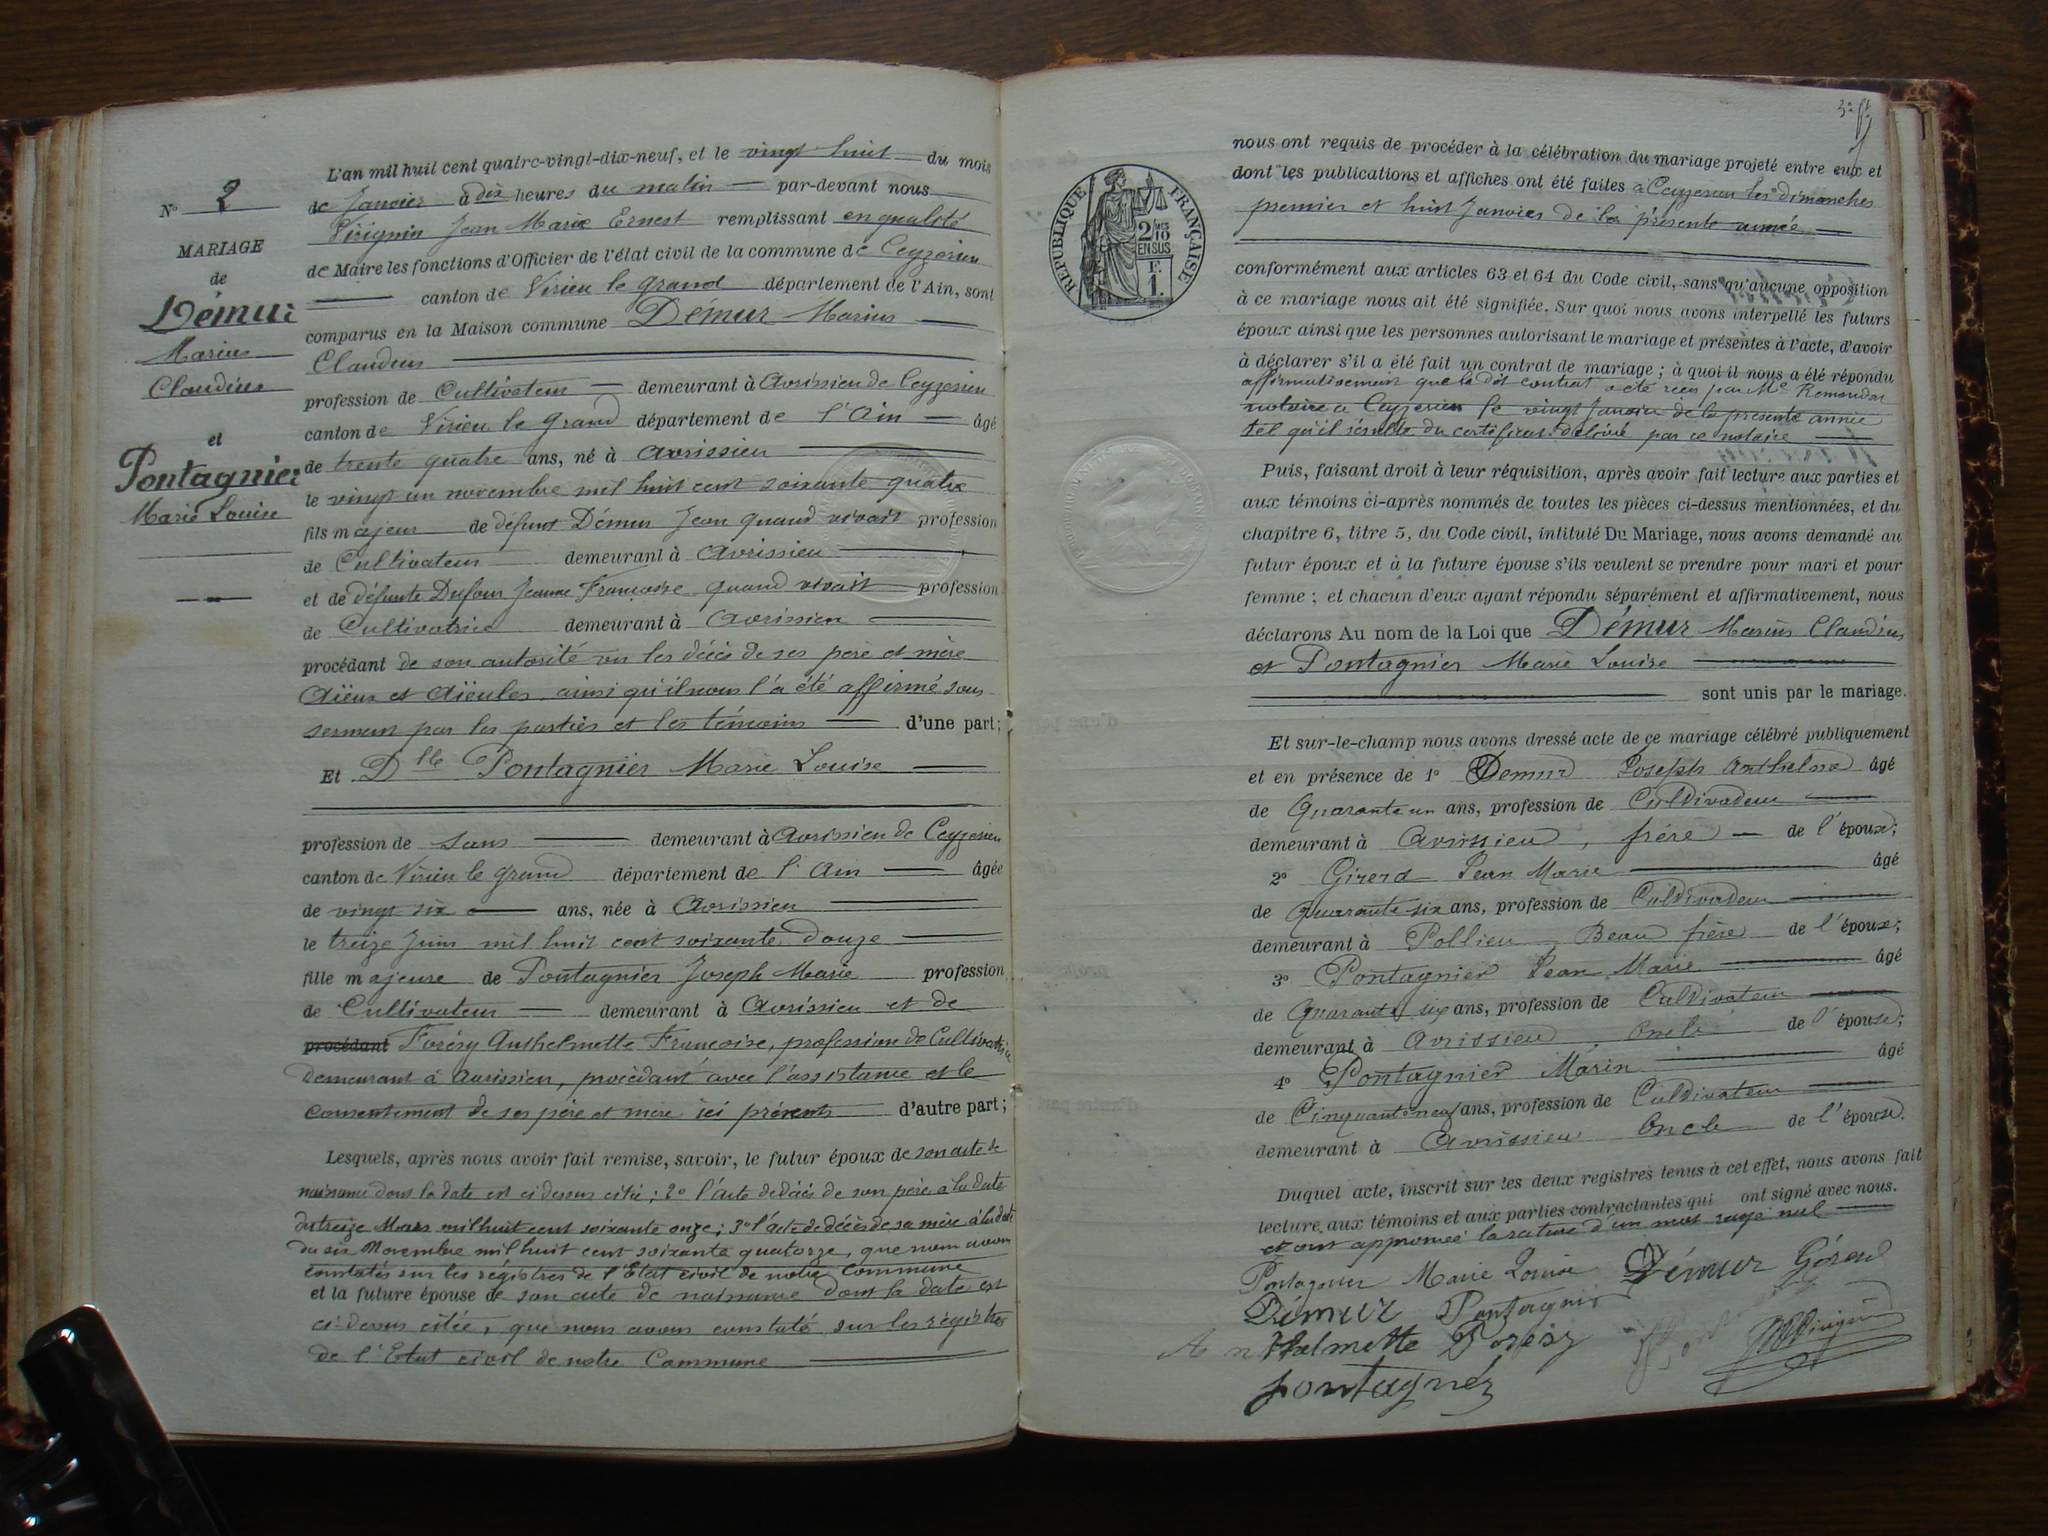 N° 2
MARIAGE
de
Démur
Marius
Claudius
et
Pontagnier
Marie Louise
L'an mil huit cent quatre-vingt-dix-neuf, et le vingt huit du mois
de Janvier à dix heures du matin par-devant nous
Virignin Jean Marie Ernest remplissant en qualité
de Maire les fonctions d'Officier de l'état civil de la commune de Ceyzerieu
canton de Virieu le grand département de l'Ain, sont
comparus en la Maison commune Démur Marius
Claudius
profession de Cultivateur demeurant à Avrissieu de Ceyzerieu
canton de Virieu le Grand département de l'Ain âgé
de trente quatre ans, né à Avrissieu
le vingt un novembre mil huit cent soixante quatre
fils majeur de défunt Démur Jean quand vivait profession
de Cultivateur demeurant à Avrissieu
et de défunte Dufour Jeanne Françoise quand vivait profession
de Cultivatrice demeurant à Avrissieu
procédant de son autorité vu les décès de ses père et mère
Aïeux et Aïeules ainsi qu'il nous l'a été affirmé sous
serment par les parties et les témoins d'une part;
Et Dlle Pontagnier Marie Louise
profession de sans demeurant à Avrissieu de Ceyzerieu
canton de Virieu le Grand département de l'Ain âgée
de vingt six ans, née à Avrissieu
le treize Juin mil huit cent soixante douze
fille majeure de Pontagnier Joseph Marie profession
de Cultivateur demeurant à Avrissieu et de
procédant Forésy Anthelmette Françoise, profession de Cultivatrice
demeurant à Avrissieu, procédant avec l'assistance et le
consentement de ses père et mère ici présents d'autre part;
Lesquels, après nous avoir fait remise, savoir, le futur époux de son acte de
naissance dont la date est ci dessus citée; 2° l'acte de décès de son père à la date
du treize Mars mil huit cent soixante onze; 3° l'acte de décès de sa mère à la date
du six Novembre mil huit cent soixante quatorze, que nous avons
constatés sur les régistres de l'Etat civil de notre Commune
et la future épouse de son acte de naissance dont la date est
ci-dessus citée, que nous avons constaté sur les régistres
de l'Etat civil de notre Commune
nous ont requis de procéder à la célébration du mariage projeté entre eux et
dont les publications et affiches ont été faites à Ceyzerieu les dimanches
premier et huit Janvier de la présente année
REPUBLIQUE FRANÇAISE
2/10 EN SUS
F. 1.
conformément aux articles 63 et 64 du Code civil, sans qu'aucune opposition
à ce mariage nous ait été signifiée. Sur quoi nous avons interpellé les futurs
époux ainsi que les personnes autorisant le mariage et présentes à l'acte, d'avoir
à déclarer s'il a été fait un contrat de mariage; à quoi il nous a été répondu
affirmativement que le dit contrat a été reçu par Me
notaire à Ceyzerieu le vingt Janvier de la présente année
tel qu'il résulte du certificat délivré par ce notaire
Puis, faisant droit à leur réquisition, après avoir fait lecture aux parties et
aux témoins ci-après nommés de toutes les pièces ci-dessus mentionnées, et du
chapitre 6, titre 5, du Code civil, intitulé Du Mariage, nous avons demandé au
futur époux et à la future épouse s'ils veulent se prendre pour mari et pour
femme; et chacun d'eux ayant répondu séparément et affirmativement, nous
déclarons Au nom de la Loi que Démur Marius Claudius
et Pontagnier Marie Louise
sont unis par le mariage.
Et sur-le-champ nous avons dressé acte de ce mariage célébré publiquement
et en présence de 1° Demur Joseph Anthelme âgé
de Quarante un ans, profession de Cultivateur
demeurant à Avrissieu, frère de l'époux;
2° Girerd Jean Marie âgé
de Quarante six ans, profession de Cultivateur
demeurant à Pollieu Beau frère de l'époux;
3° Pontagnier Jean Marie âgé
de Quarante six ans, profession de Cultivateur
demeurant à Avrissieu Oncle de l'épouse;
4° Pontagnier Marin âgé
de Cinquante neuf ans, profession de Cultivateur
demeurant à Avrissieu Oncle de l'épouse.
Duquel acte, inscrit sur les deux registres tenus à cet effet, nous avons fait
lecture aux témoins et aux parties contractantes qui ont signé avec nous.
et ont approuvé la rature d'un mot rayé nul
Pontagnier Marie Louise Démur Girerd
Démur Pontagnier
Anthelmette Forésy
pontagnier